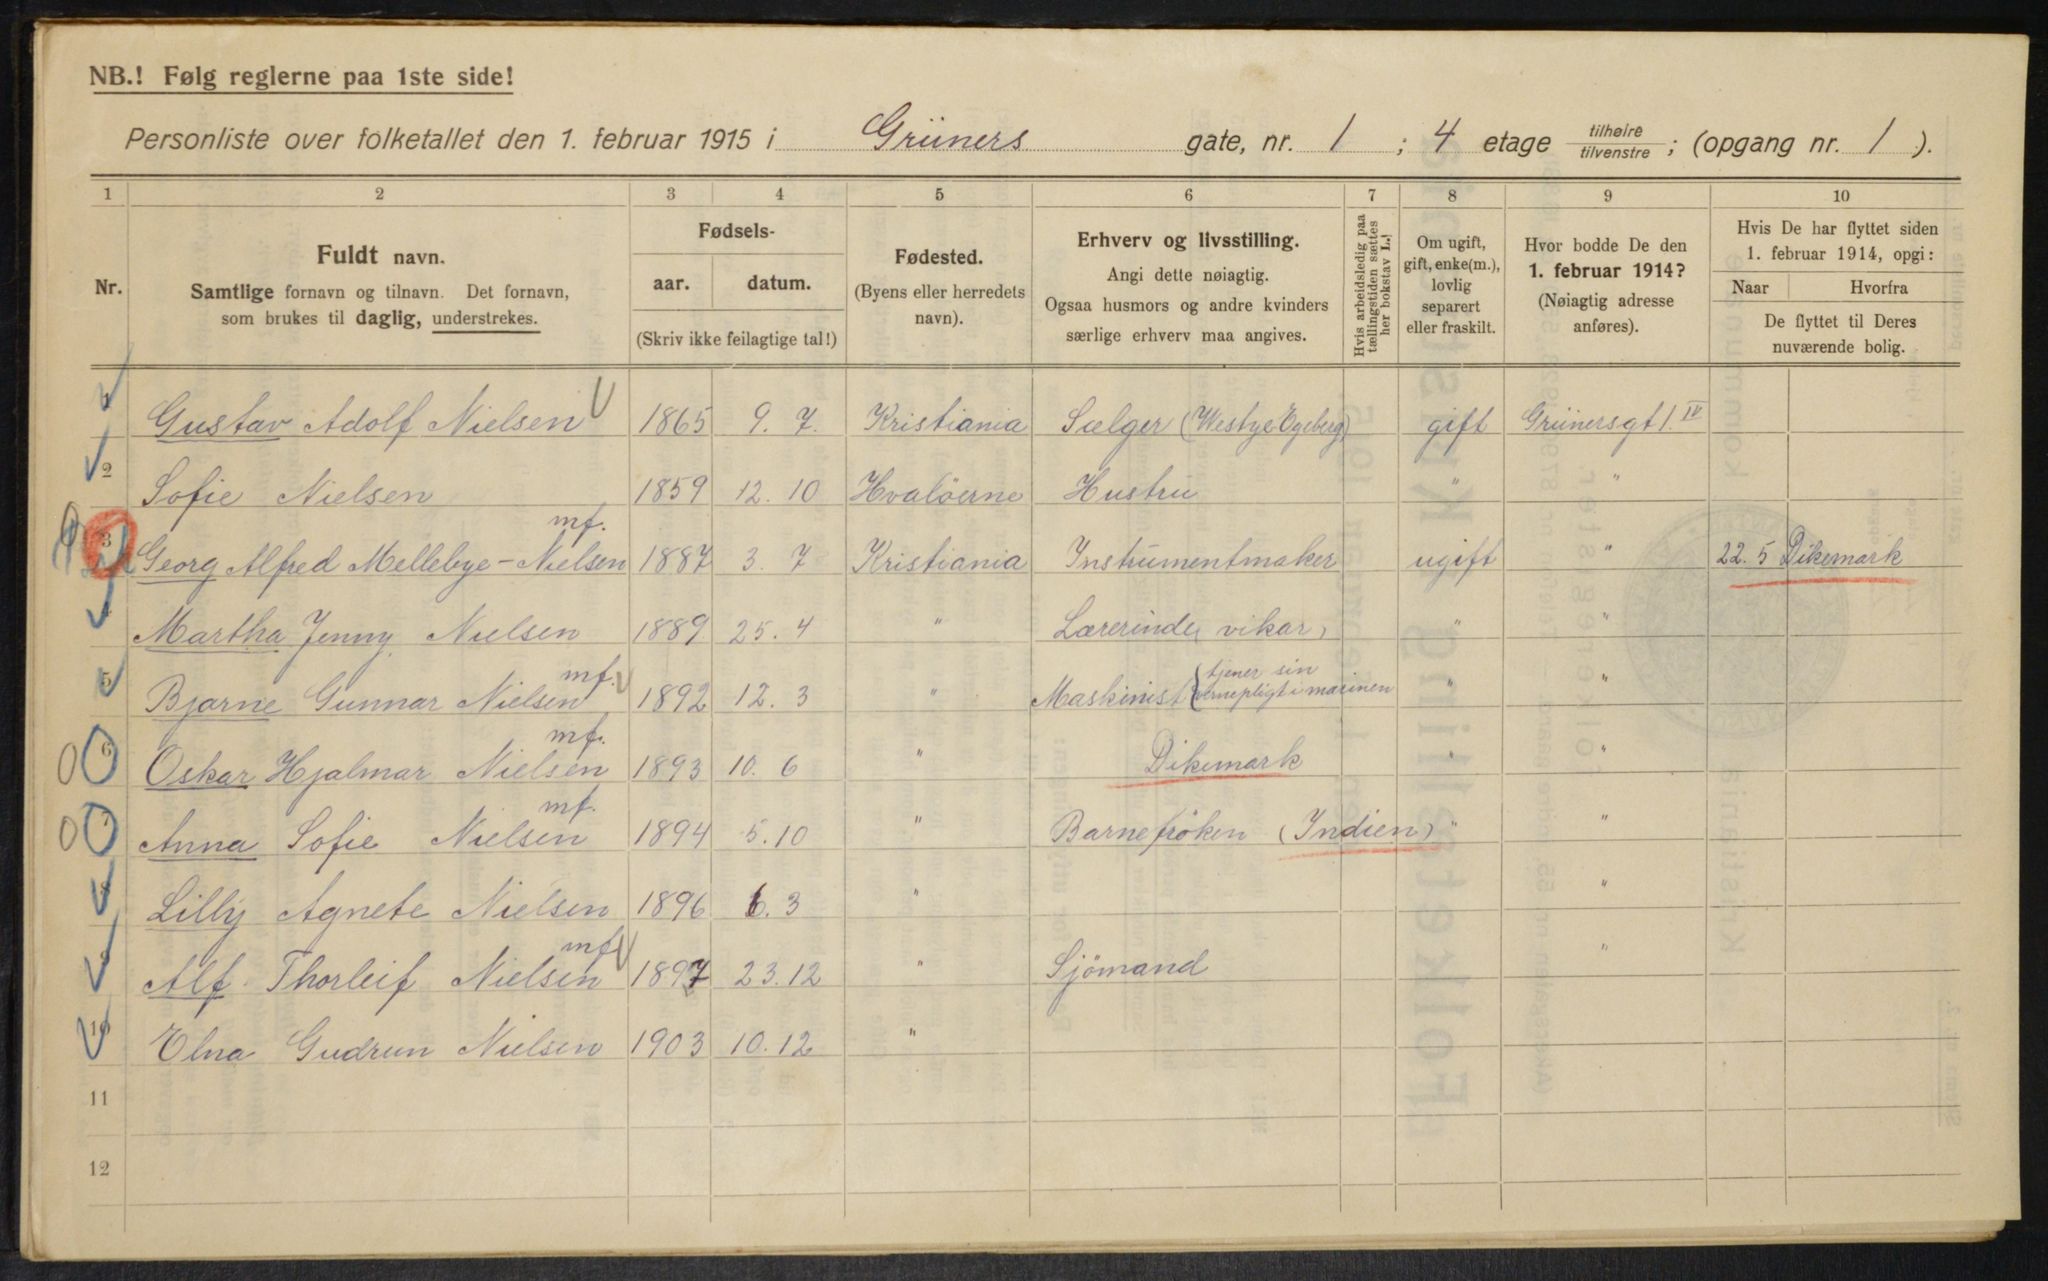 NB.! Følg reglerne paa 1ste side!
Personliste over folketallet den 1. februar 1915 i Grüners gate, nr. 1 ; 4 etage tilhøire tilvenstre ; (opgang nr. 1 ).
1 2 3 4 5 6 7 8 9 10
Nr.
Fuldt navn.
Samtlige fornavn og tilnavn. Det fornavn,
som brukes til daglig, understrekes.
Fødsels-
aar. datum.
(Skriv ikke feilagtige tal!)
Fødested.
(Byens eller herredets
navn).
Erhverv og livsstilling.
Angi dette nøiagtig.
Ogsaa husmors og andre kvinders
særlige erhverv maa angives.
Hvis arbeidsledig paa
tællingstiden sættes
her bokstav L.!
Om ugift,
gift, enke(m.),
lovlig
separert
eller fraskilt.
Hvor bodde De den
1. februar 1914?
(Nøiagtig adresse
anføres).
Hvis De har flyttet siden
1. februar 1914, opgi:
Naar Hvorfra
De flyttet til Deres
nuværende bolig.
1 Gustav Adolf Nielsen 1865 9. 7. Kristiania Sælger (Westye Egeberg) gift Grünersgt 1. IV
2 Sofie Nielsen 1859 12. 10 Hvalöerne Hustru " "
mf.
3 Georg Alfred Mellebye-Nielsen 1887 3. 7 Kristiania Instrumentmaker ugift " 22. 5 Dikemark
4 Martha Jenny Nielsen 1889 25. 4 " Lærerinde (vikar) " "
mf. tjener sin
5 Bjarne Gunnar Nielsen 1892 12. 3 " Maskinist (vernepligt i marinen " "
mf.
6 Oskar Hjalmar Nielsen 1893 10. 6 " Dikemark " "
mf.
7 Anna Sofie Nielsen 1894 5. 10 " Barnefröken (Indien) " "
8 Lilly Agnete Nielsen 1896 6. 3 " "
mf
9 Alf Thorleif Nielsen 1897 23. 12 " Sjömand "
10 Elna Gudrun Nielsen 1903 10. 12 "
11
12